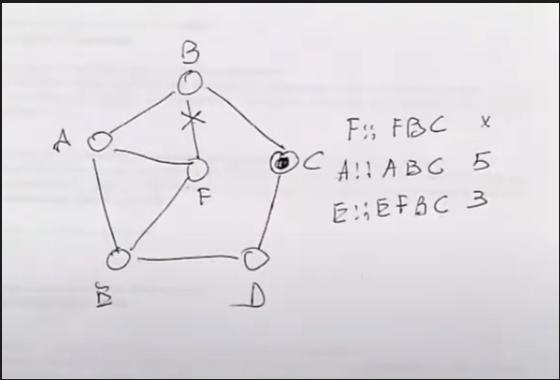 B
A
F
C
D
F:: FBC x
A:: ABC 5
E:: EFBC 3